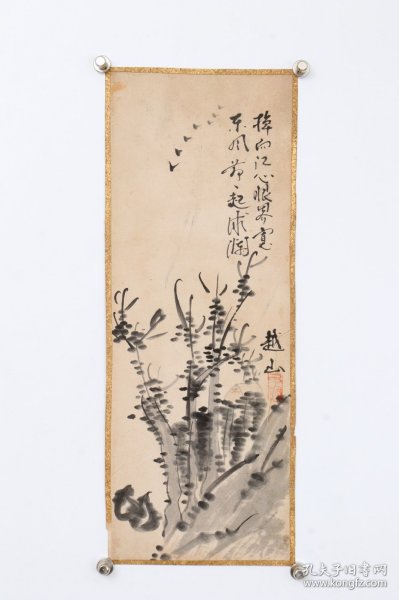 掉向江心眼界寬
東風昔〻起波瀾
越山
孔夫子旧书网
www.kongfz.com